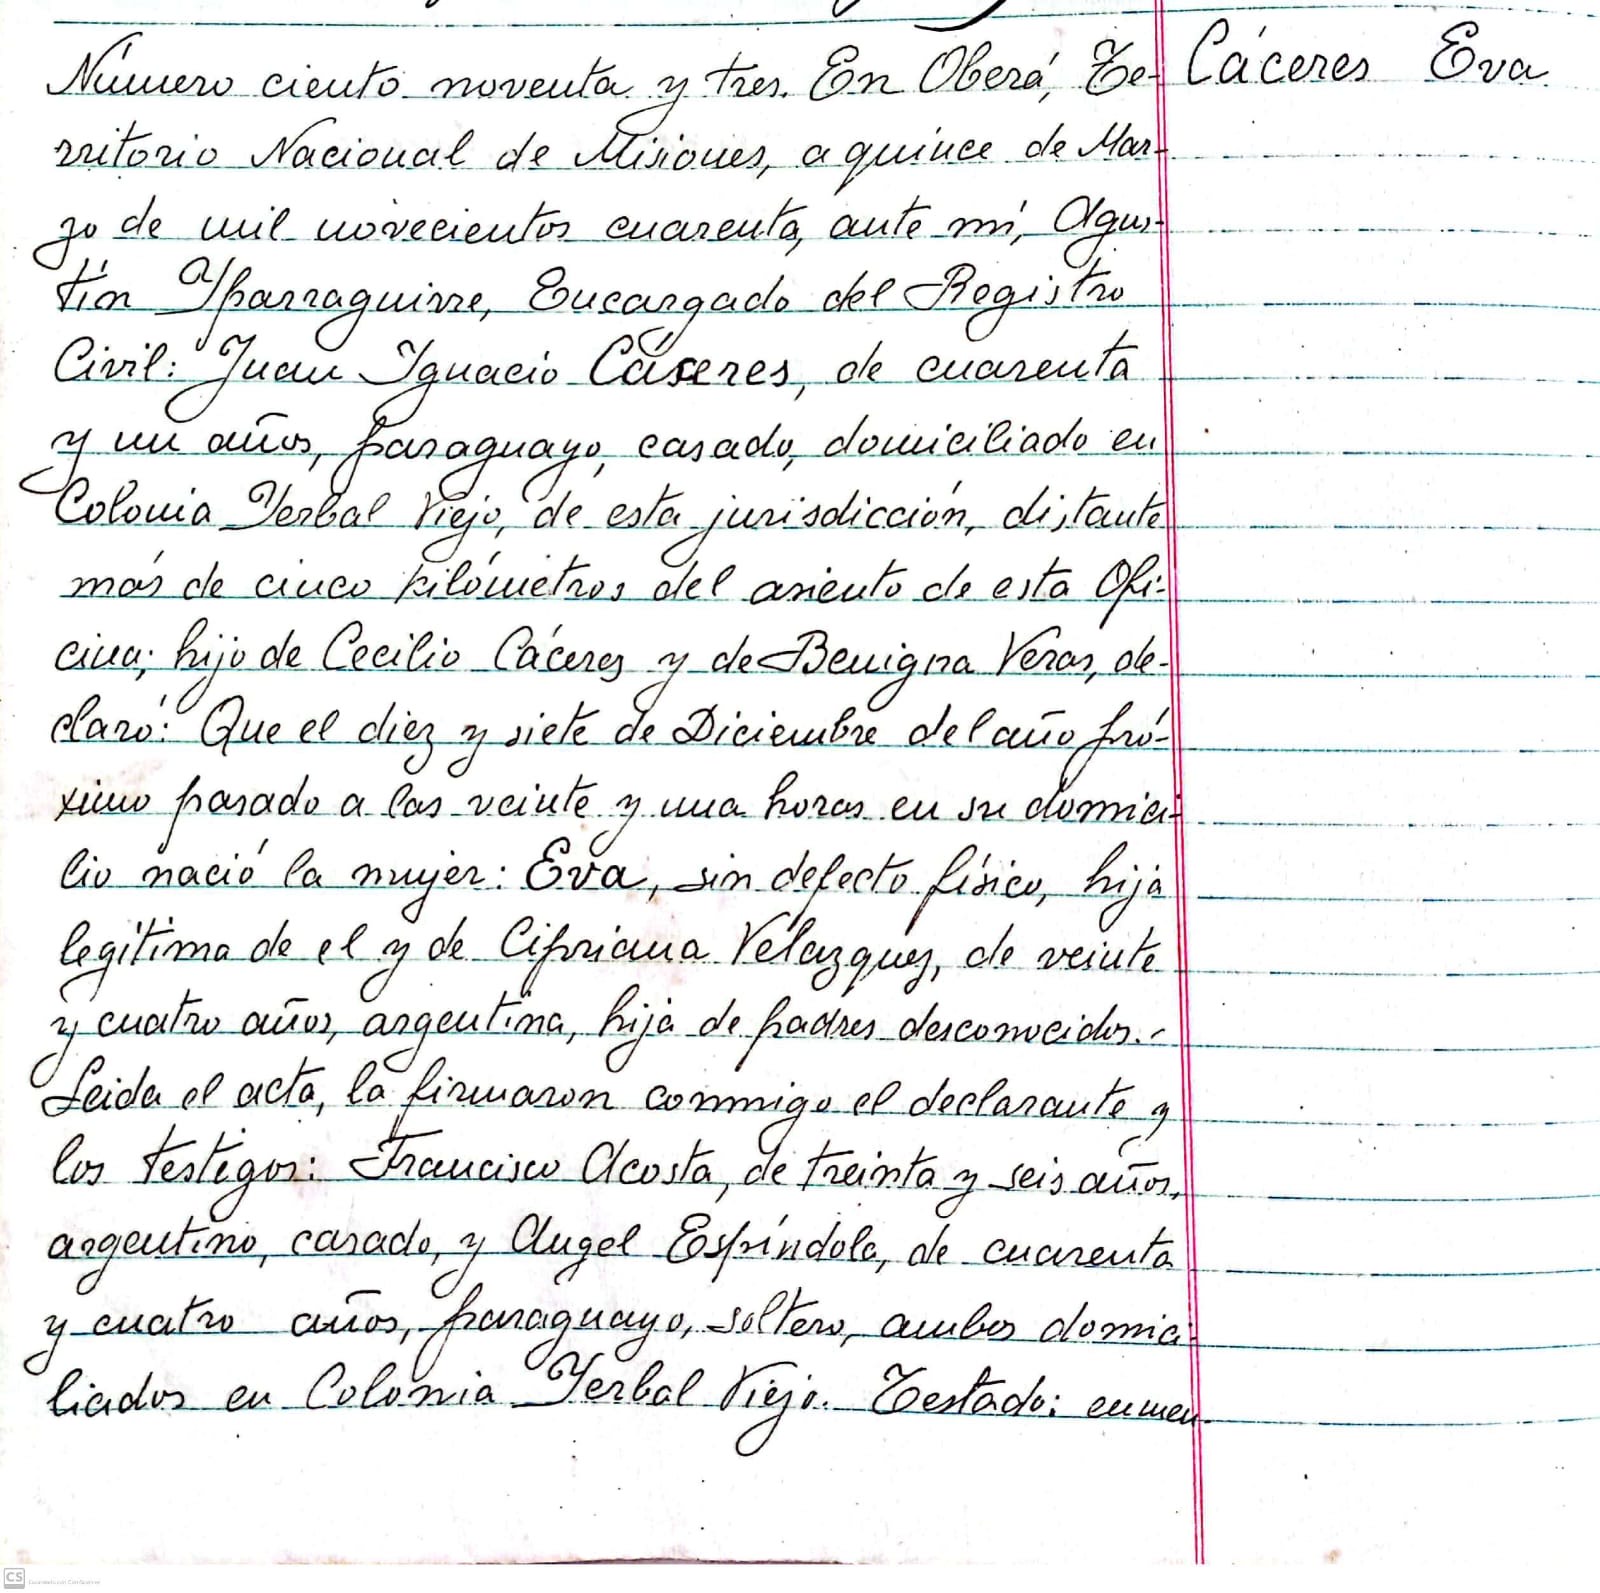 Número ciento noventa y tres. En Oberá, Te-
Cáceres Eva.
rritorio Nacional de Misiones, a quince de Mar-
zo de mil novecientos cuarenta, ante mí, Agus-
tín Yparraguirre, Encargado del Registro
Civil: Juan Ignacio Cáceres, de cuarenta
y un años, paraguayo, casado, domiciliado en
Colonia Yerbal Viejo, de esta jurisdicción, distante
más de cinco kilómetros del asiento de esta Ofi-
cina; hijo de Cecilio Cáceres y de Benigna Veras, de-
claró: Que el diez y siete de Diciembre del año pró-
ximo pasado a las veinte y una horas en su domici-
lio nació la mujer: Eva, sin defecto físico, hija
legítima de el y de Cipriana Velazquez, de veinte
y cuatro años, argentina, hija de padres desconocidos.-
Leida el acta, la firmaron conmigo el declarante y
los testigos: Francisco Acosta, de treinta y seis años,
argentino, casado, y Angel Espíndola, de cuarenta
y cuatro años, paraguayo, soltero, ambos domici-
liados en Colonia Yerbal Viejo. Testado: enmen
CS Scanned with CamScanner